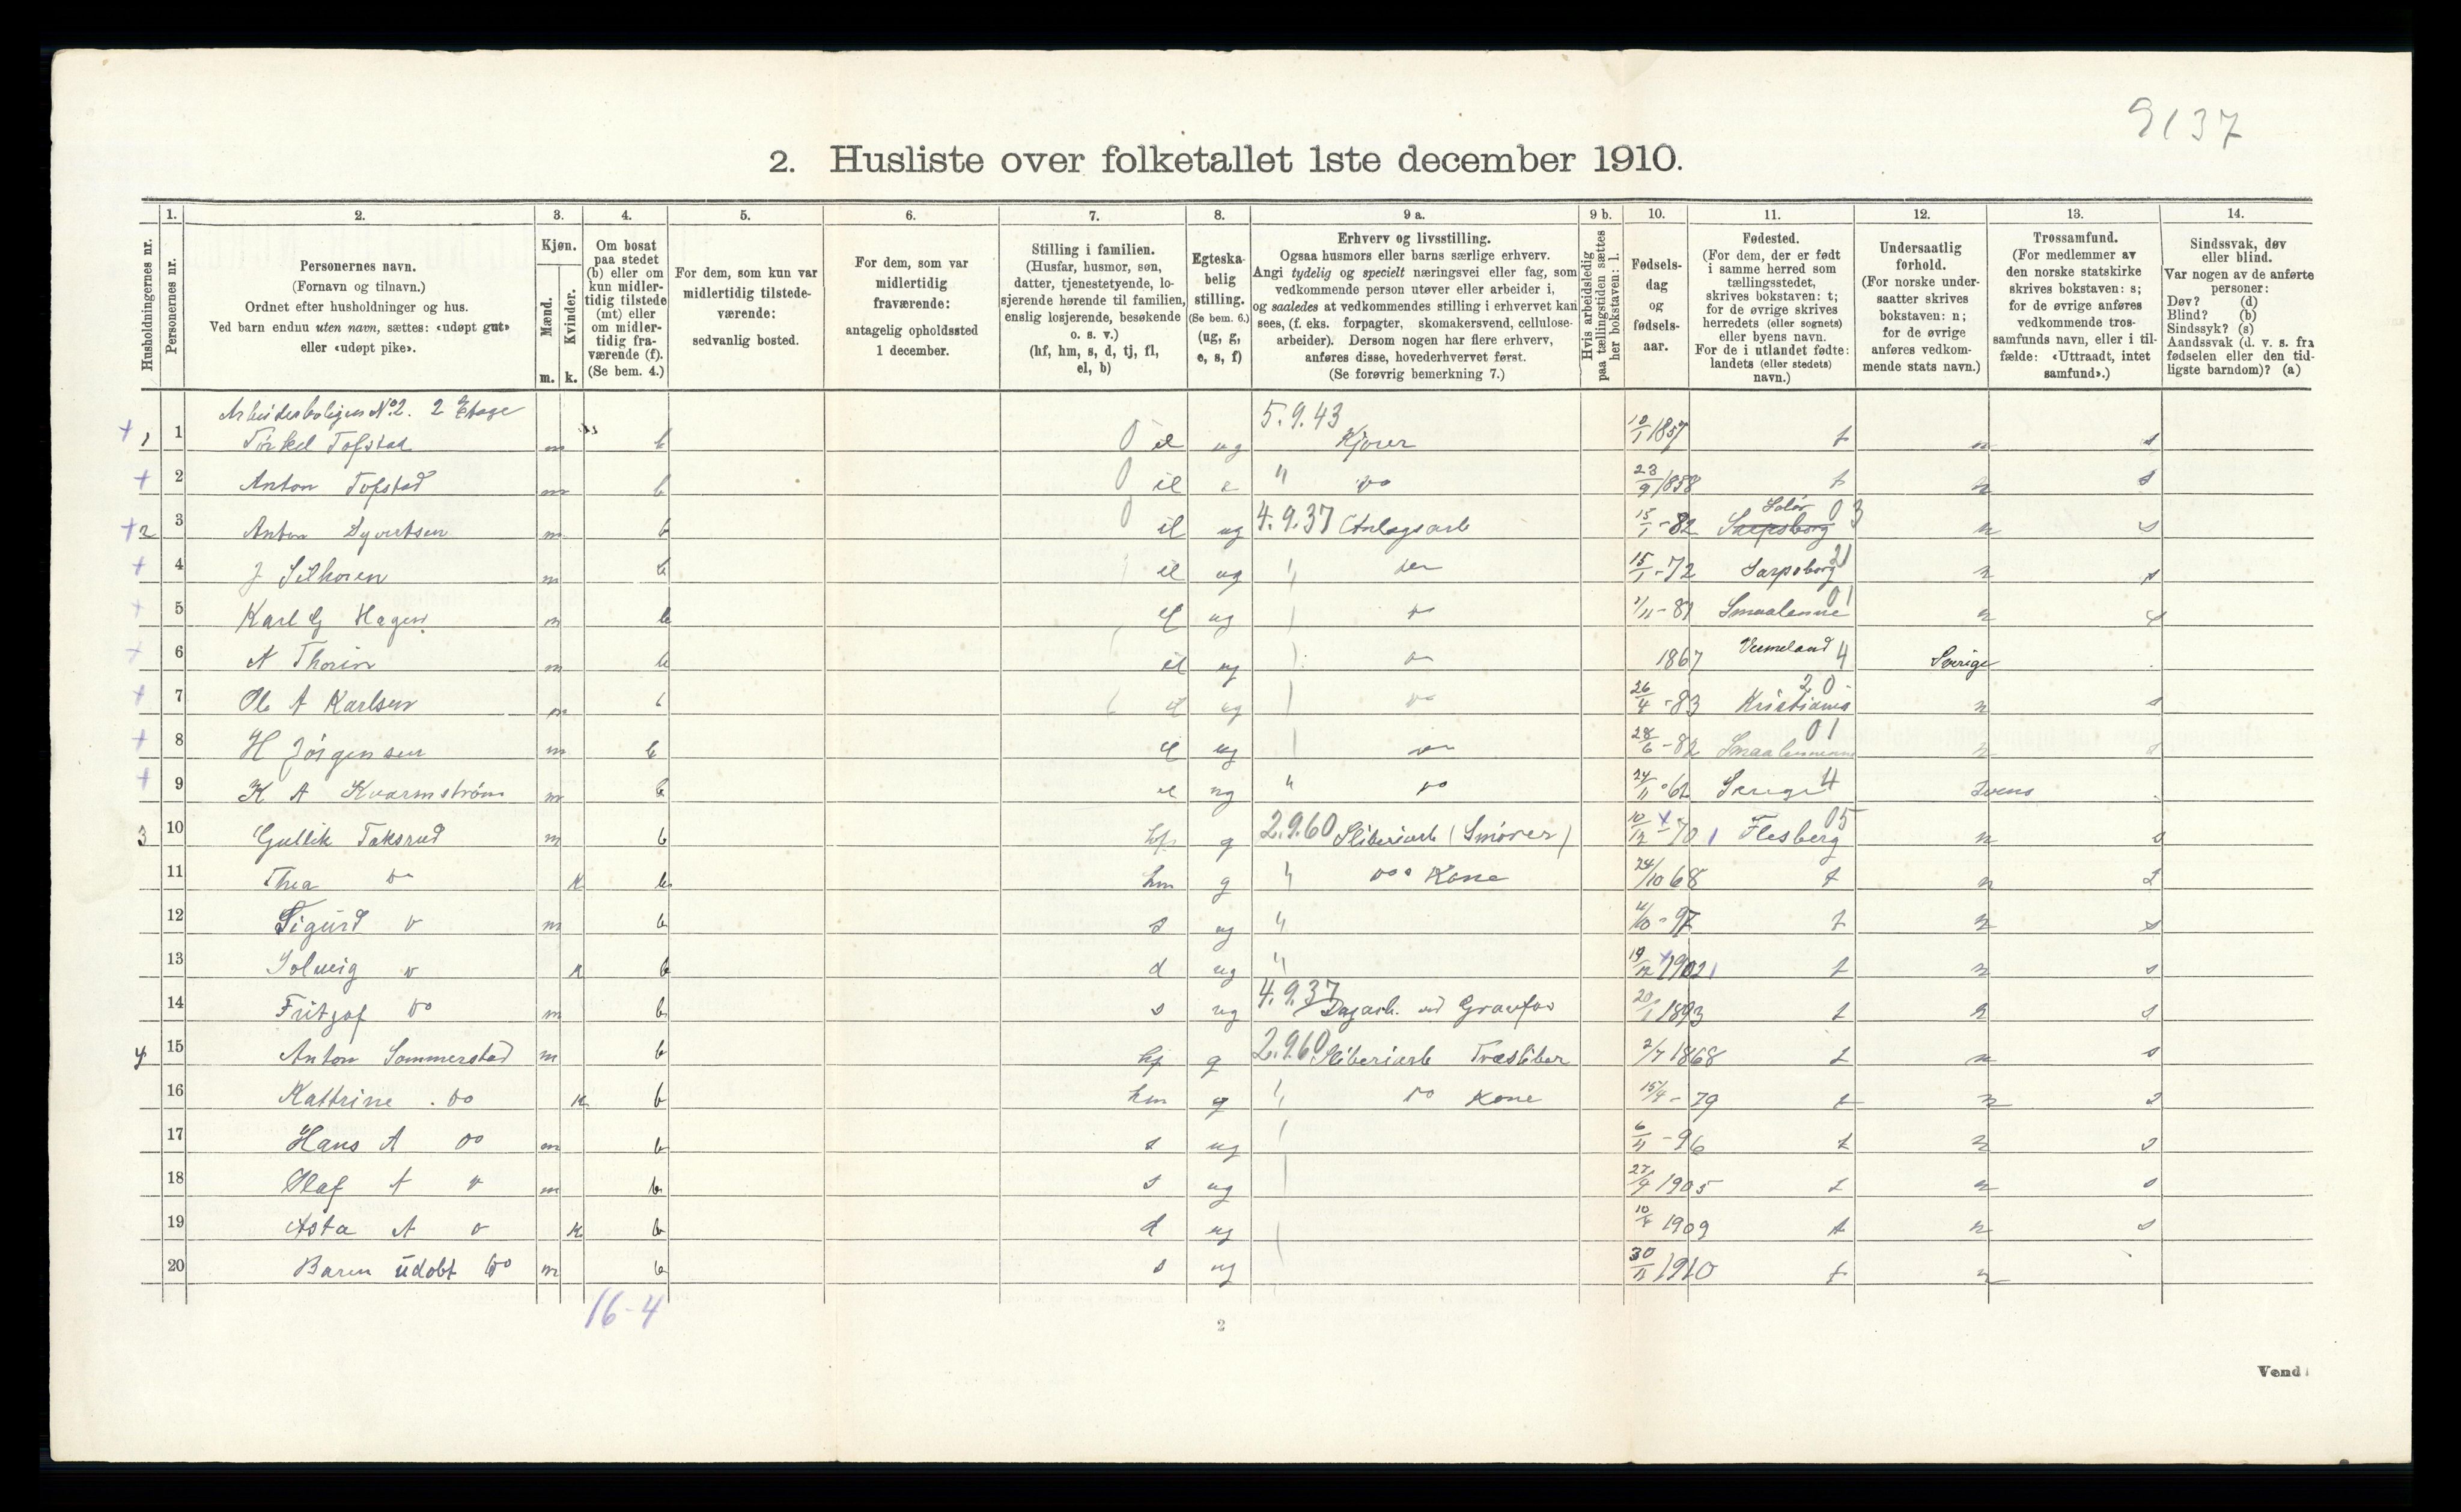 9137
2. Husliste over folketallet 1ste december 1910.
Husholdningernes nr.
1. Personernes nr.
2. Personernes navn.
(Fornavn og tilnavn.)
Ordnet efter husholdninger og hus.
Ved barn endnu uten navn, sættes: «udøpt gut»
eller «udøpt pike».
3. Kjøn.
Mænd. m.
Kvinder. k.
4. Om bosat
paa stedet
(b) eller om
kun midler-
tidig tilstede
(mt) eller
om midler-
tidig fra-
værende (f).
(Se bem. 4.)
5. For dem, som kun var
midlertidig tilstede-
værende:
sedvanlig bosted.
6. For dem, som var
midlertidig
fraværende:
antagelig opholdssted
1 december.
7. Stilling i familien.
(Husfar, husmor, søn,
datter, tjenestetyende, lo-
sjerende hørende til familien,
enslig losjerende, besøkende
o. s. v.)
(hf, hm, s, d, tj, fl,
el, b)
8. Egteska-
belig
stilling.
(Se bem. 6.)
(ug, g,
e, s, f)
9 a. Erhverv og livsstilling.
Ogsaa husmors eller barns særlige erhverv.
Angi tydelig og specielt næringsvei eller fag, som
vedkommende person utøver eller arbeider i,
og saaledes at vedkommendes stilling i erhvervet kan
sees, (f. eks. forpagter, skomakersvend, cellulose-
arbeider). Dersom nogen har flere erhverv,
anføres disse, hovederhvervet først.
(Se forøvrig bemerkning 7.)
9 b. Hvis arbeidsledig
paa tællingstiden sættes
her bokstaven: l.
10. Fødsels-
dag
og
fødsels-
aar.
11. Fødested.
(For dem, der er født
i samme herred som
tællingsstedet,
skrives bokstaven: t;
for de øvrige skrives
herredets (eller sognets)
eller byens navn.
For de i utlandet fødte:
landets (eller stedets)
navn.)
12. Undersaatlig
forhold.
(For norske under-
saatter skrives
bokstaven: n;
for de øvrige
anføres vedkom-
mende stats navn.)
13. Trossamfund.
(For medlemmer av
den norske statskirke
skrives bokstaven: s;
for de øvrige anføres
vedkommende tros-
samfunds navn, eller i til-
fælde: «Uttraadt, intet
samfund».)
14. Sindssvak, døv
eller blind.
Var nogen av de anførte
personer:
Døv? (d)
Blind? (b)
Sindssyk? (s)
Aandssvak (d. v. s. fra
fødselen eller den tid-
ligste barndom)? (a)
Arbeiderboligen No 2. 2 Etage 5.9.43
+ 1 1 Torkel Tofstad m b 0 el ug Kjører 10/1 1857 t n s
+ 2 Anton Tofstad m b 0 el e " do 23/9 1858 t n s
+ 2 3 Anton Syvertsen m b 0 el ug 4.9.37 Anlagsarb 15/1 - 82 Sarpsborg Solør 03 n s
+ 4 J Silhoren m b el ug " 15/1 - 72 Sarpsborg 21 n s
+ 5 Karl G Hagen m b el ug do Smaalenne 01 n s
+ 6 A Thorin m b el ug do 1867 Vermeland 4 Sverige
+ 7 Ole A Karlsen m b el ug do 26/4 - 83 Kristiania 20 n s
+ 8 H Jørgensen m b el ug do 28/6 - 82 Smaalennene 01 n s
+ 9 K A Kvarmstrøm m b el ug " do 24/11 Sverige 4 Svens
3 10 Gullik Taksrud m b hf g 2.9.60 Sliberiarb (Smører) 10/12 - 70 Flesberg 05 n s
11 Thea do k b hm g " do Kone 24/10 68 t n s
12 Sigurd do m b s ug " - 97 t n s
13 Solveig do k b d ug " 19/12 1902 t n s
14 Fritjof do m b s ug 4.9.37 Dagarb. ved Gravfos 20/1 1893 t n s
4 15 Anton Sommerstad m b hf g 2.9.60 Sliberiarb Træsliber 2/7 1868 t n s
16 Kattrine do k b hm g " do Kone 15/4 - 79 t n s
17 Hans A do m b s ug 6/11 - 96 t n s
18 Olaf A do m b s ug 27/4 1905 t n s
19 Asta A do k b d ug 1909 t n s
20 Baren udøbt do m b s ug 30/11 1910 t n
16-4
2
Vend